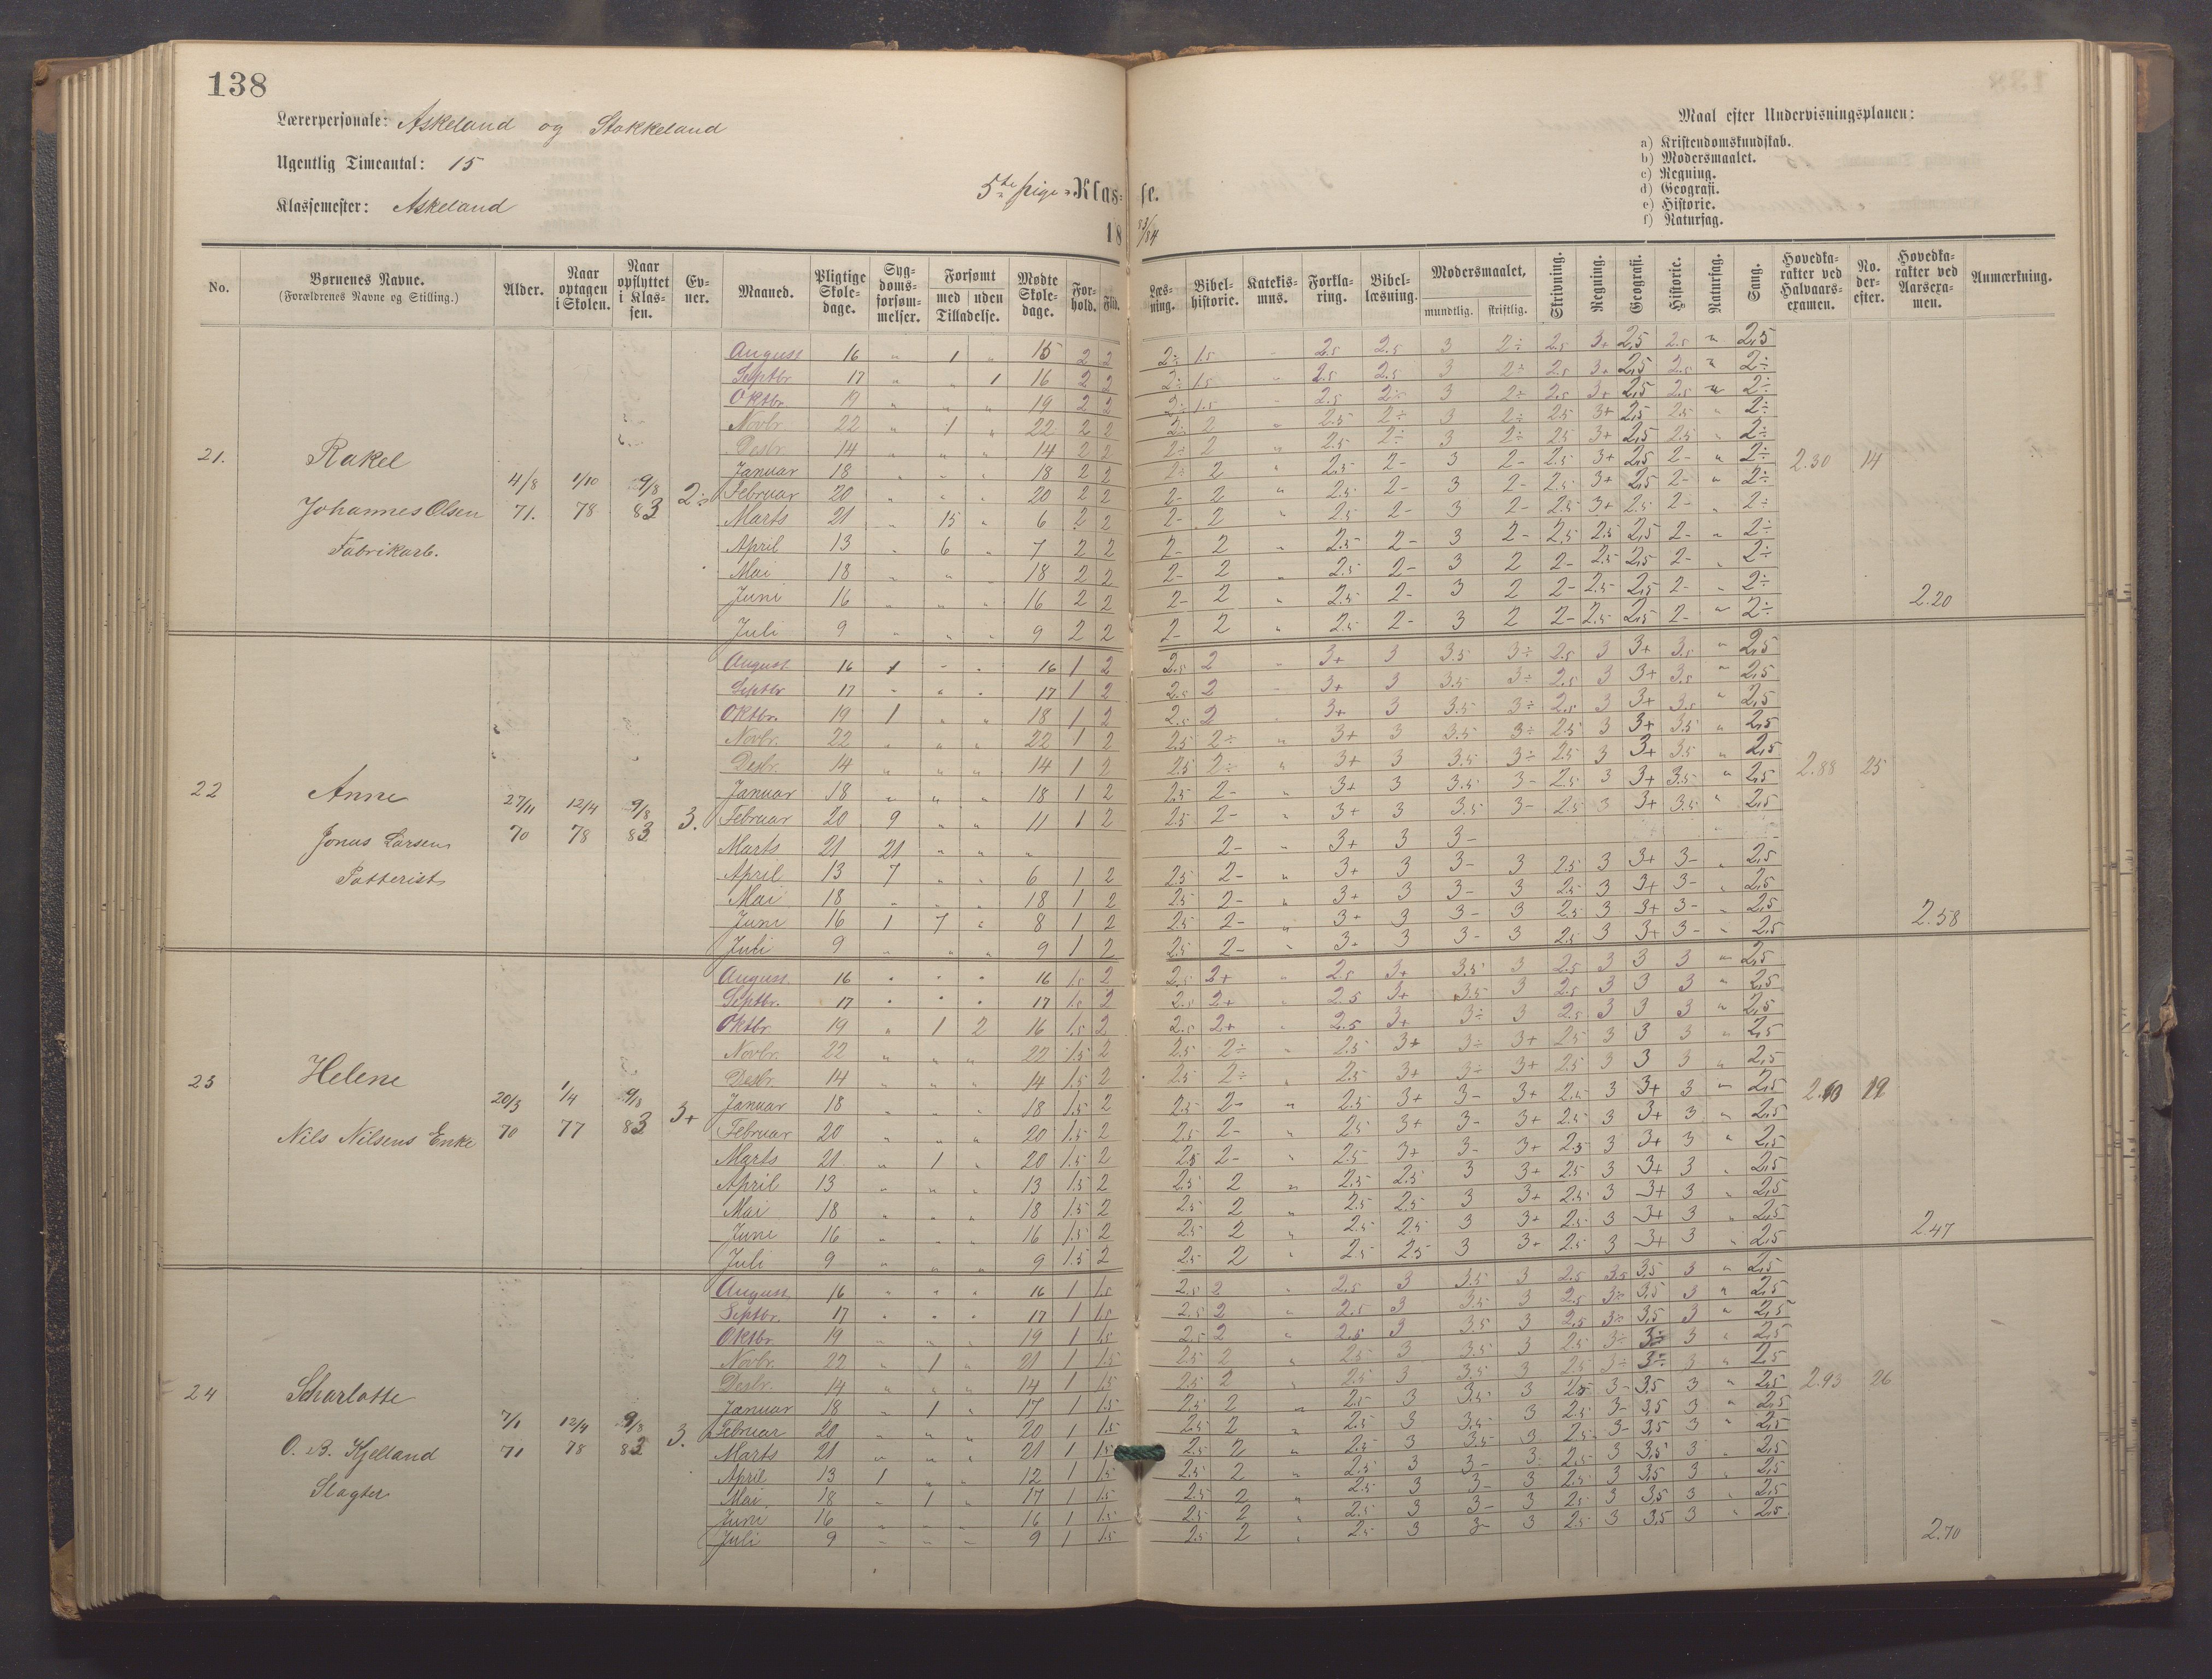 138
Lærerpersonale: Askeland og Stokkeland
Ugentlig Timeantal: 15
Klassemester: Askeland
5te pige-Klasse.
18 83/84
Maal efter Undervisningsplanen:
a) Kristendomskundskab.
b) Modersmaalet.
c) Regning.
d) Geografi.
e) Historie.
f) Naturfag.
No. Børnenes Navne. (Forældrenes Navne og Stilling.) Alder. Naar optagen i Skolen. Naar opflyttet i Klassen. Evner. Maaned. Pligtige Skoledage. Sygdomsforsømmelser. Forsømt med uden Tilladelse. Mødte Skoledage. Forhold. Flid. Læsning. Bibelhistorie. Katekismus. Forklaring. Bibellæsning. Modersmaalet, mundtlig. skriftlig. Skrivning. Regning. Geografi. Historie. Naturfag. Sang. Hovedkarakter ved Halvaarsexamen. No. derefter. Hovedkarakter ved Aarsexamen. Anmærkning.
21. Rakel
Johannes Olsen
Fabrikarb.
4/8 71. 1/10 78 9/8 83 2÷
August 16 " 1 " 15 2 2 2÷ 1.5 " 2.5 2.5 3 2÷ 2.5 3+ 2,5 2.5 " 2,5
Septbr 17 " " 1 16 2 2 2÷ 1.5 " 2.5 2.5 3 2÷ 2.5 3+ 2,5 2.5 " 2÷
Oktbr. 19 " " " 19 2 2 2÷ 1.5 " 2.5 2÷ 3 2÷ 2.5 3+ 2,5 2.5 " 2÷
Novbr. 22 " 1 " 22 2 2 2÷ 2 " 2.5 2÷ 3 2÷ 2.5 3+ 2,5 2.5 " 2÷
Desbr. 14 " " " 14 2 2 2÷ 2 " 2.5 2÷ 3 2÷ 2.5 3+ 2,5 2.5 " 2÷
Januar 18 " " " 18 2 2 2÷ 2 " 2.5 2- 3 2- 2.5 3+ 2,5 2- " 2÷ 2.30 14
Februar 20 " " " 20 2 2 2- 2 " 2.5 2- 3 2- 2.5 3+ 2,5 2- " 2÷
Marts 21 " 15 " 6 2 2 2- 2 " 2.5 2- 3 2- 2.5 3+ 2.5 2- " 2÷
April 13 " 6 " 7 2 2 2- 2 " 2.5 2- 3 2- 2,5 2.5 2,5 2- " 2÷
Mai 18 " " " 18 2 2 2- 2 " 2.5 2- 3 2 2- 2.5 2,5 2- " 2÷
Juni 16 " " " 16 2 2 2- 2 " 2.5 2- 3 2 2- 2.5 2,5 2- " 2÷ 2.20
Juli 9 " " " 9 2 2 2- 2 " 2.5 2- 3 2 2- 2.5 2,5 2- " 2÷
22 Anne
Jonas Larsen
Potterist
27/11 70 12/4 78 9/8 83 3.
August 16 1 " " 16 1 2 2.5 2 " 3+ 3 3.5 3÷ 2.5 3 3+ 3.5 " 2,5
Septbr 17 " " " 17 1 2 2.5 2 " 3+ 3 3.5 3÷ 2.5 3 3+ 3.5 " 2,5
Oktbr. 19 1 " " 18 1 2 2.5 2 " 3+ 3 3.5 3÷ 2.5 3 3+ 3.5 " 2,5
Novbr. 22 " " " 22 1 2 2.5 2÷ " 3+ 3 3.5 3÷ 2.5 3 3+ 3.5 " 2,5
Desbr. 14 " " " 14 1 2 2.5 2÷ " 3+ 3 3.5 3÷ 2.5 3 3+ 3.5 " 2,5
Januar 18 " " " 18 1 2 2.5 2- " 3+ 3 3.5 3- 2.5 3 3+ 3.5 " 2,5 2.88 25
Februar 20 9 " " 11 1 2 2.5 2- " 3+ 3 3.5 3- 2.5 3 3+ 3.5 " 2,5
Marts 21 21 " " " 2- " 3+ 3 3-
April 13 7 " " 6 1 2 2.5 2- " 3+ 3 3- 3 2.5 3 3+ 3- " 2,5
Mai 18 " " " 18 1 2 2.5 2- " 3+ 3 3- 3 2.5 3 3+ 3- " 2,5
Juni 16 1 7 " 8 1 2 2.5 2- " 3+ 3 3- 3 2.5 3 3+ 3- " 2,5 2.58
Juli 9 " " " 9 1 2 2.5 2- " 3+ 3 3- 3 2.5 3 3+ 3- " 2,5
23 Helene
Nils Nilsens Enke
20/3 70 1/4 77 9/8 83 3+
August. 16 " " " 16 1.5 2 2.5 2+ " 2.5 3+ 3.5 3 2.5 3 3 3 " 2,5
Septbr. 17 " " " 17 1.5 2 2.5 2+ " 2.5 3+ 3.5 3 2.5 3 3 3 " 2,5
Oktbr 19 " 1 2 16 1.5 2 2.5 2+ " 2.5 3+ 3÷ 3 2.5 3 3 3 " 2,5
Novbr. 22 " " " 22 1.5 2 2.5 2÷ " 2.5 3+ 3÷ 3+ 2.5 3 3 3 " 2,5
Desbr. 14 " " " 14 1.5 2 2.5 2÷ " 2.5 3+ 3÷ 3+ 2.5 3 3 3 " 2,5
Januar 18 " " " 18 1.5 2 2.5 2- " 2.5 3+ 3- 3+ 2.5 3 3+ 3 " 2,5 19
Februar 20 " " " 20 1.5 2 2.5 2- " 2.5 3+ 3- 3+ 2.5 3 3+ 3 " 2,5
Marts 21 " 1 " 20 1.5 2 2.5 2- " 2.5 3+ 3- 3+ 2.5 3 3+ 3 " 2,5
April 13 " " " 13 1.5 2 2.5 2 " 2.5 2.5 3 3+ 2.5 3 3+ 3 " 2,5
Mai 18 " " " 18 1.5 2 2.5 2 " 2.5 2.5 3 3+ 2.5 3 3+ 3 " 2,5
Juni 16 " " " 16 1.5 2 2.5 2 " 2.5 2.5 3 3+ 2.5 3 3+ 3 " 2,5 2.47
Juli 9 " " " 9 1.5 2 2.5 2 " 2.5 2.5 3 3+ 2.5 3 3+ 3 " 2,5
24 Scharlotte
O. B. Kjelland
Slagter
7/1 71 12/4 78 9/8 83 3.
August. 16 " " " 16 1 1.5 2.5 2 " 2.5 3 3.5 3 2.5 3.5 3,5 3 " 2,5
Septbr. 17 " " " 17 1 1.5 2.5 2 " 2.5 3 3.5 3 2.5 3÷ 3,5 3 " 2,5
Oktbr. 19 " " " 19 1 1.5 2.5 2 " 2.5 3 3.5 3 2.5 3÷ 3,5 3 " 2,5
Novbr. 22 " 1 " 21 1 1.5 2.5 2 " 2.5 3 3.5 3 2.5 3÷ 3÷ 3 " 2,5
Desbr. 14 " " " 14 1 1.5 2.5 2 " 2.5 3 3.5 3 2.5 3÷ 3÷ 3 " 2,5
Januar 18 " 1 " 17 1 1.5 2.5 2 " 2.5 3 3.5 3 2.5 3- 3,5 3 " 2,5 2.93 26
Februar 20 " " " 20 1 1.5 2.5 2 " 2.5 3 3.5 3 2.5 3- 3,5 3 " 2,5
Marts 21 " " " 21 1 1.5 2.5 2 " 2.5 3 3.5 3 2.5 3- 3,5 3 " 2,5
April 13 1 " " 12 1 1.5 2.5 2 " 2.5 3 3- 3 2.5 3 3,5 3 " 2,5
Mai 18 " 1 " 17 1 1.5 2.5 2 " 2.5 3 3- 3 2.5 3 3,5 3 " 2,5
Juni 16 " " " 16 1 1.5 2.5 2 " 2.5 3 3- 3 2.5 3 3,5 3 " 2,5
Juli 9 " " " 9 1 1.5 2.5 2 " 2.5 3 3- 3 2.5 3 3,5 3 " 2,5 2.70